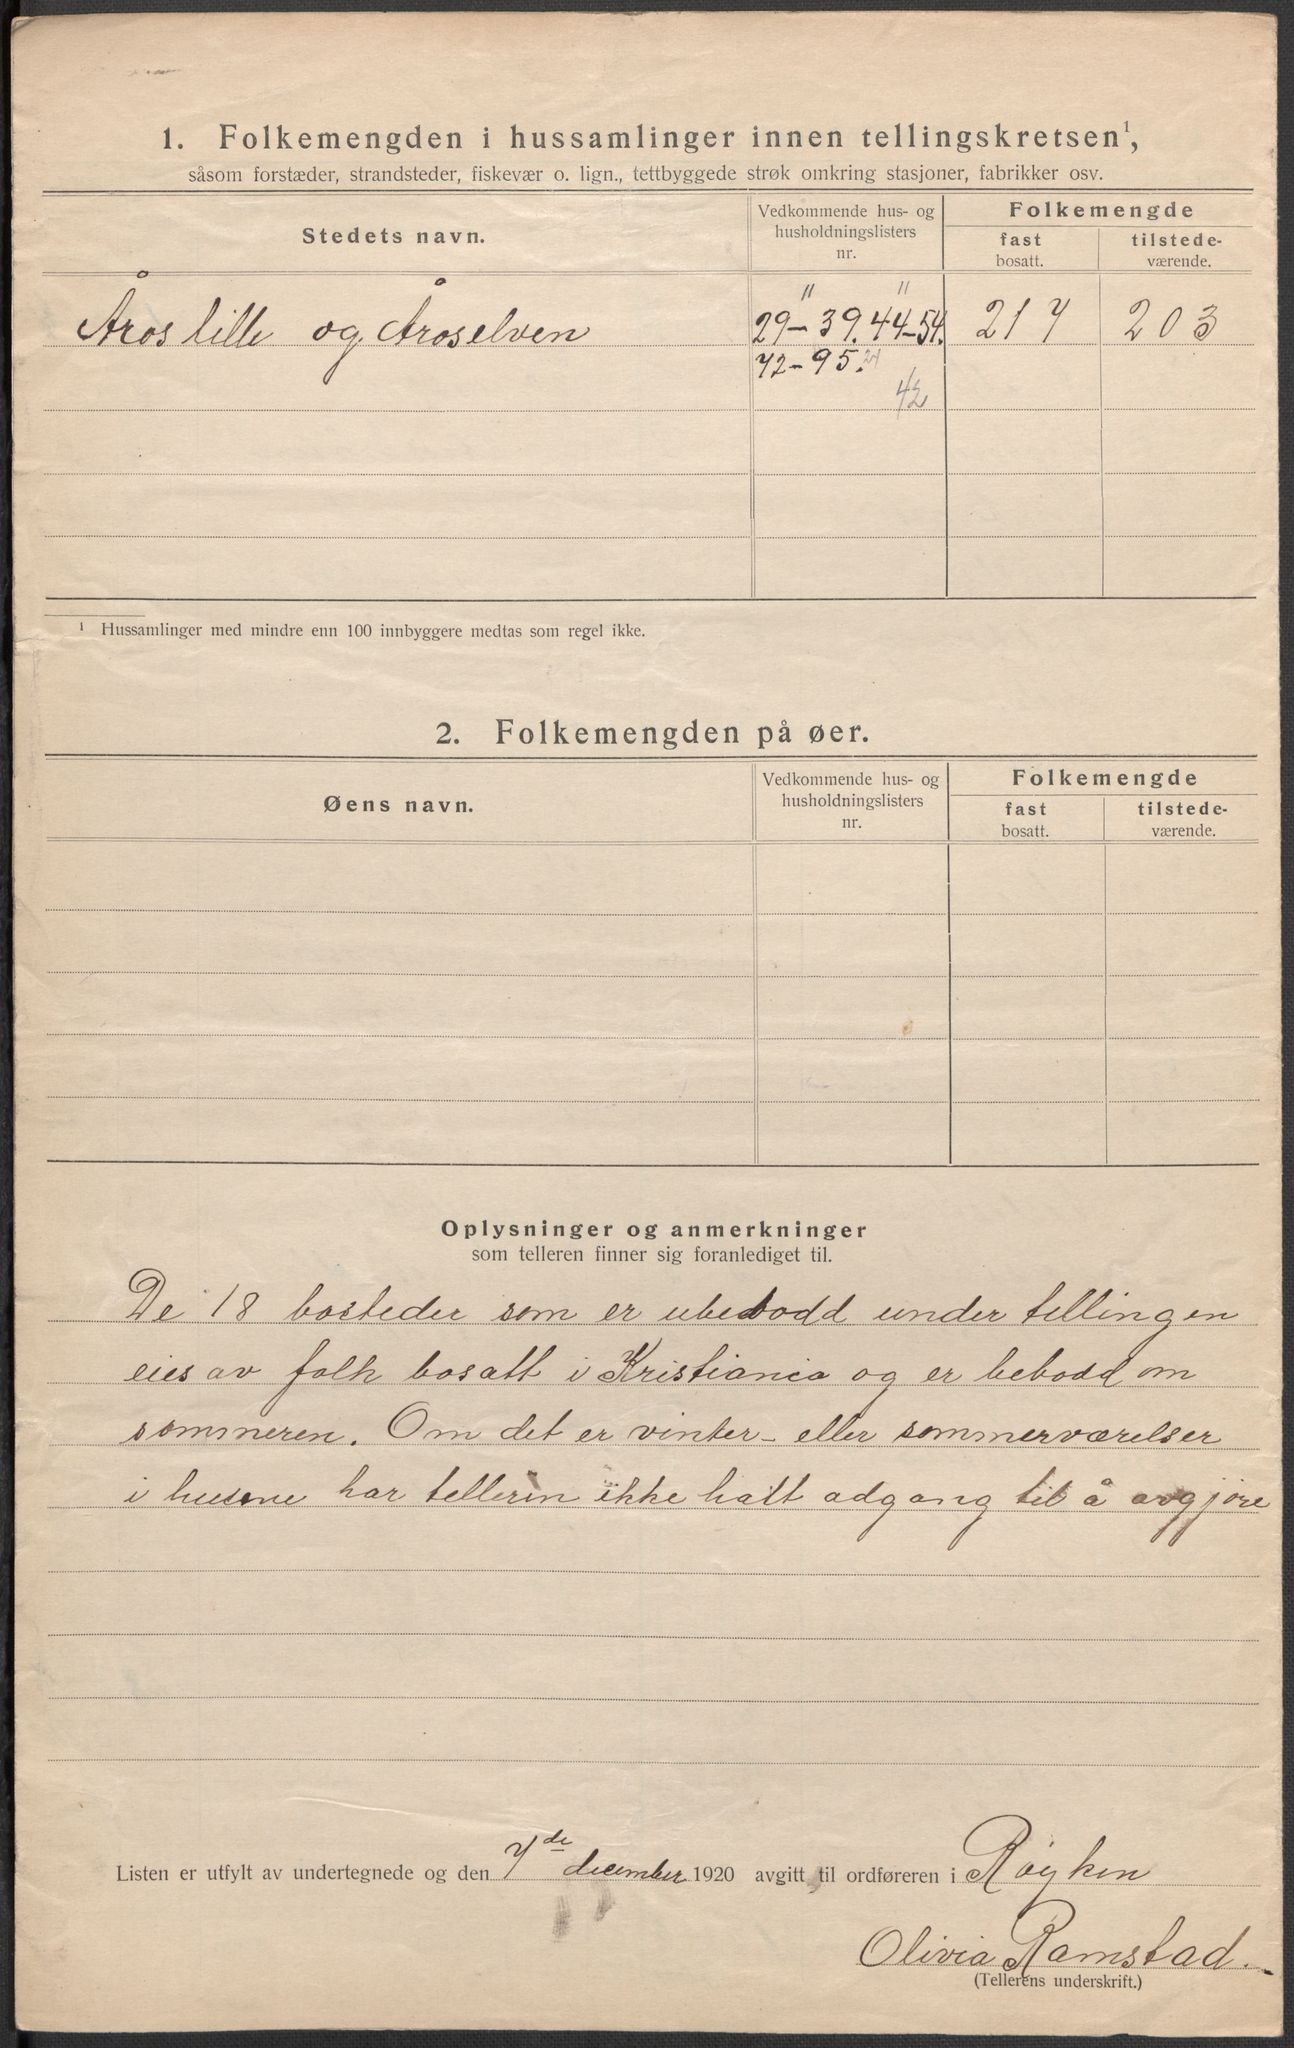 1. Folkemengden i hussamlinger innen tellingskretsen¹,
såsom forstæder, strandsteder, fiskevær o. lign., tettbyggede strøk omkring stasjoner, fabrikker osv.
Stedets navn.
Vedkommende hus- og
husholdningslisters
nr.
Folkemengde
fast
bosatt.
tilstede-
værende.
Åros lille og Åroselven
11 11
29-39. 44-54. 217 203
72-95. 24
42
¹ Hussamlinger med mindre enn 100 innbyggere medtas som regel ikke.
2. Folkemengden på øer.
Øens navn.
Vedkommende hus- og
husholdningslisters
nr.
Folkemengde
fast
bosatt.
tilstede-
værende.
Oplysninger og anmerkninger
som telleren finner sig foranlediget til.
De 18 bosteder som er ubebodd under tellingen
eies av folk bosatt i Kristiania og er bebodd om
sommeren. Om det er vinter- eller sommerværelser
i husene har telleren ikke hatt adgang til å avgjøre
Listen er utfylt av undertegnede og den 7de december 1920 avgitt til ordføreren i Røyken
Olivia Ramstad.
(Tellerens underskrift.)